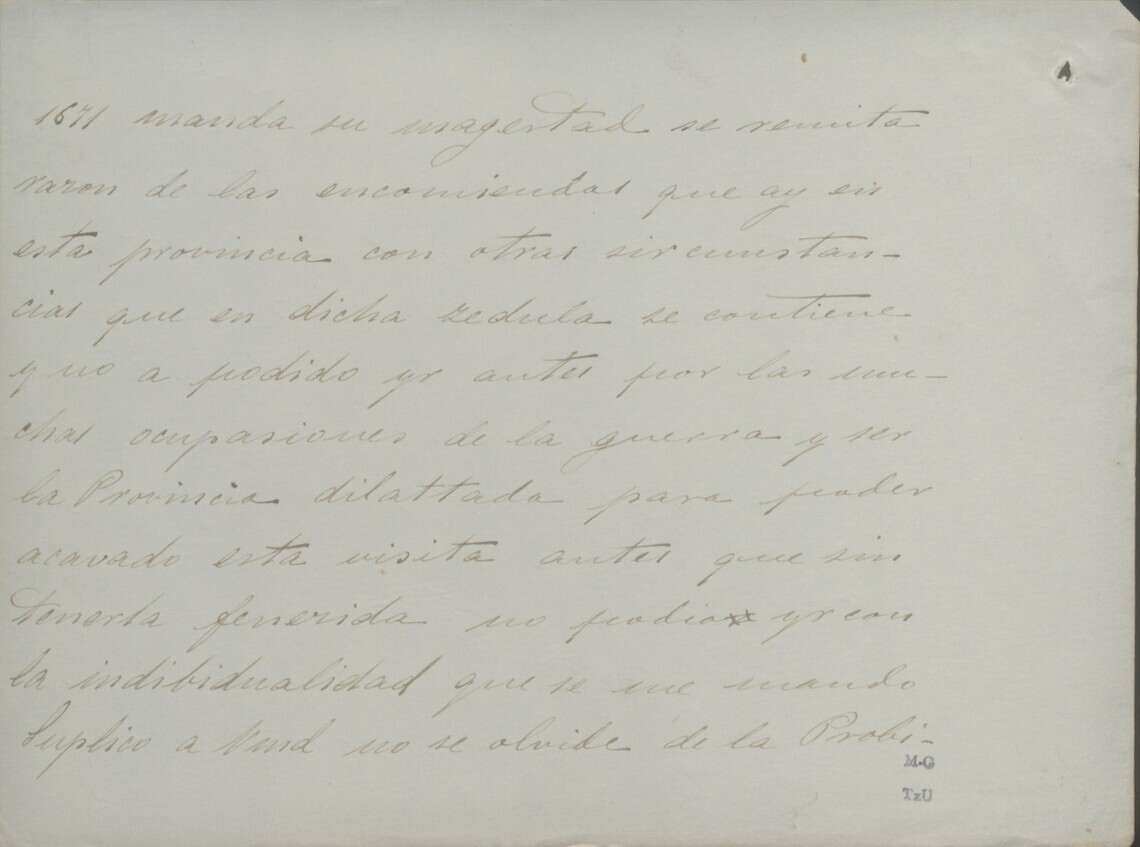 1671 manda su magestad se remita
razon de las encomiendas que ay en
esta provincia con otras sircunstan-
cias que en dicha zedula se contiene
y no a podido yr antes por las mu-
chas ocupasiones de la guerra y ser
la Provincia dilattada para poder
acavado esta visita antes que sin
tenerla fenesida no podia yr con
la indibidualidad que se me mando
Suplico a Vmd no se olvide de la Probi-
M-G
TzU